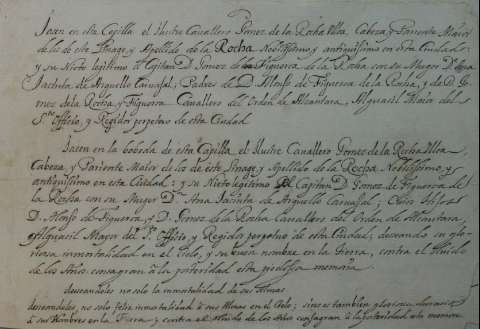 Jazen en esta Capilla el Ilustre Cavallero Gomez de la Rocha Ulloa, Cabeza, y Pariente Maior
de los de este Linage, y Apellido de la Rocha Nobilissimo, y antiquissimo en esta Ciudad:
y su Nieto legitimo el Capitan D. Gomez de Figueroa de la Rocha con su Muger D. Ana
Jacinta de Arguello Carvajal; Padres de D. Alonso de Figueroa de la Rocha, y de D. Go-
mez de la Rocha, y Figueroa Cavallero del Orden de Alcantara, Alguacil Maior del S.
Sto. Officio, y Regidor perpetuo de esta Ciudad.
Jazen en la bobeda de esta Capilla, el Ilustre Cavallero Gomez de la Rocha Ulloa,
Cabeza, y Pariente Maior de los de este Linage, y Apellido de la Rocha Nobilissimo, y
antiquissimo en esta Ciudad: y su Nieto legitimo el Capitan D. Gomez de Figueroa de
la Rocha con su Muger Da. Ana Jacinta de Arguello Carvajal; Cuios Hijos
D. Alonso de Figueroa, y D. Gomez de la Rocha Cavallero del Orden de Alcantara,
Alguacil Mayor del S. Officio, y Regidor perpetuo de esta Ciudad; deseando su glo-
riosa inmortalidad en el Cielo, y su buen nombre en la tierra, contra el Olvido
de los Años consagran à la posteridad esta piedosa memoria
deseandoles no solo la inmortalidad de sus Almas
deseandoles no solo feliz inmortalidad à sus Almas en el Cielo; sino es tambien gloriosa duracion
à sus Nombres en la Tierra; contra el Olvido de los Años consagran à la posteridad esta memoria